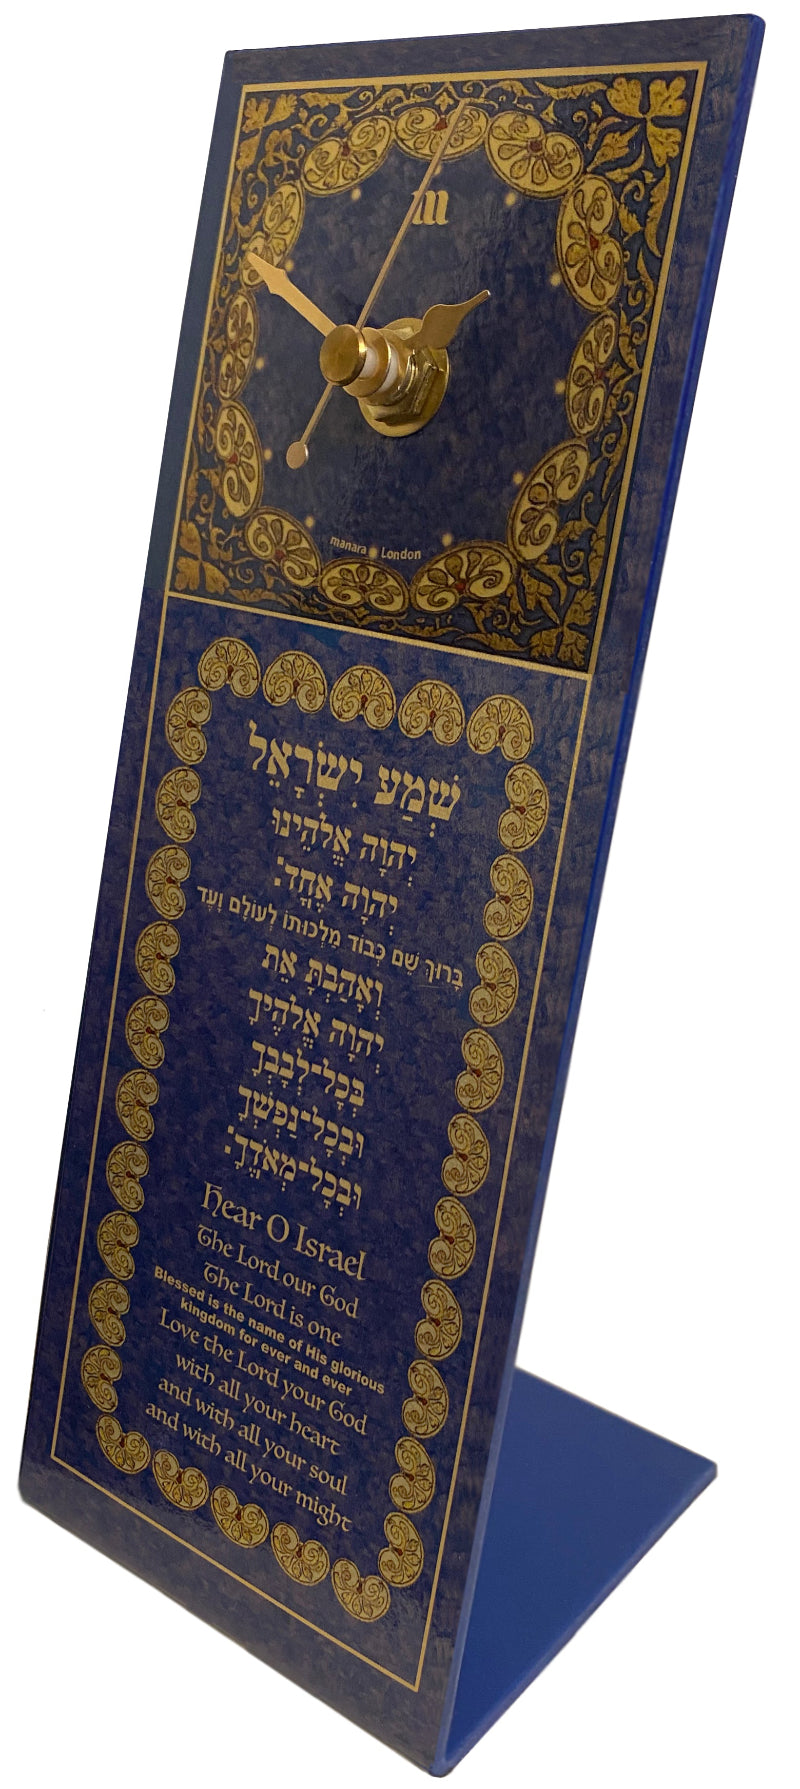 m
manara London
שְׁמַע יִשְׂרָאֵל
יְהוָה אֱלֹהֵינוּ
יְהוָה אֶחָד׃
בָּרוּךְ שֵׁם כְּבוֹד מַלְכוּתוֹ לְעוֹלָם וָעֶד
וְאָהַבְתָּ אֵת
יְהוָה אֱלֹהֶיךָ
בְּכָל־לְבָבְךָ
וּבְכָל־נַפְשְׁךָ
וּבְכָל־מְאֹדֶךָ׃
Hear O Israel
The Lord our God
The Lord is one
Blessed is the name of His glorious
kingdom for ever and ever
Love the Lord your God
with all your heart
and with all your soul
and with all your might